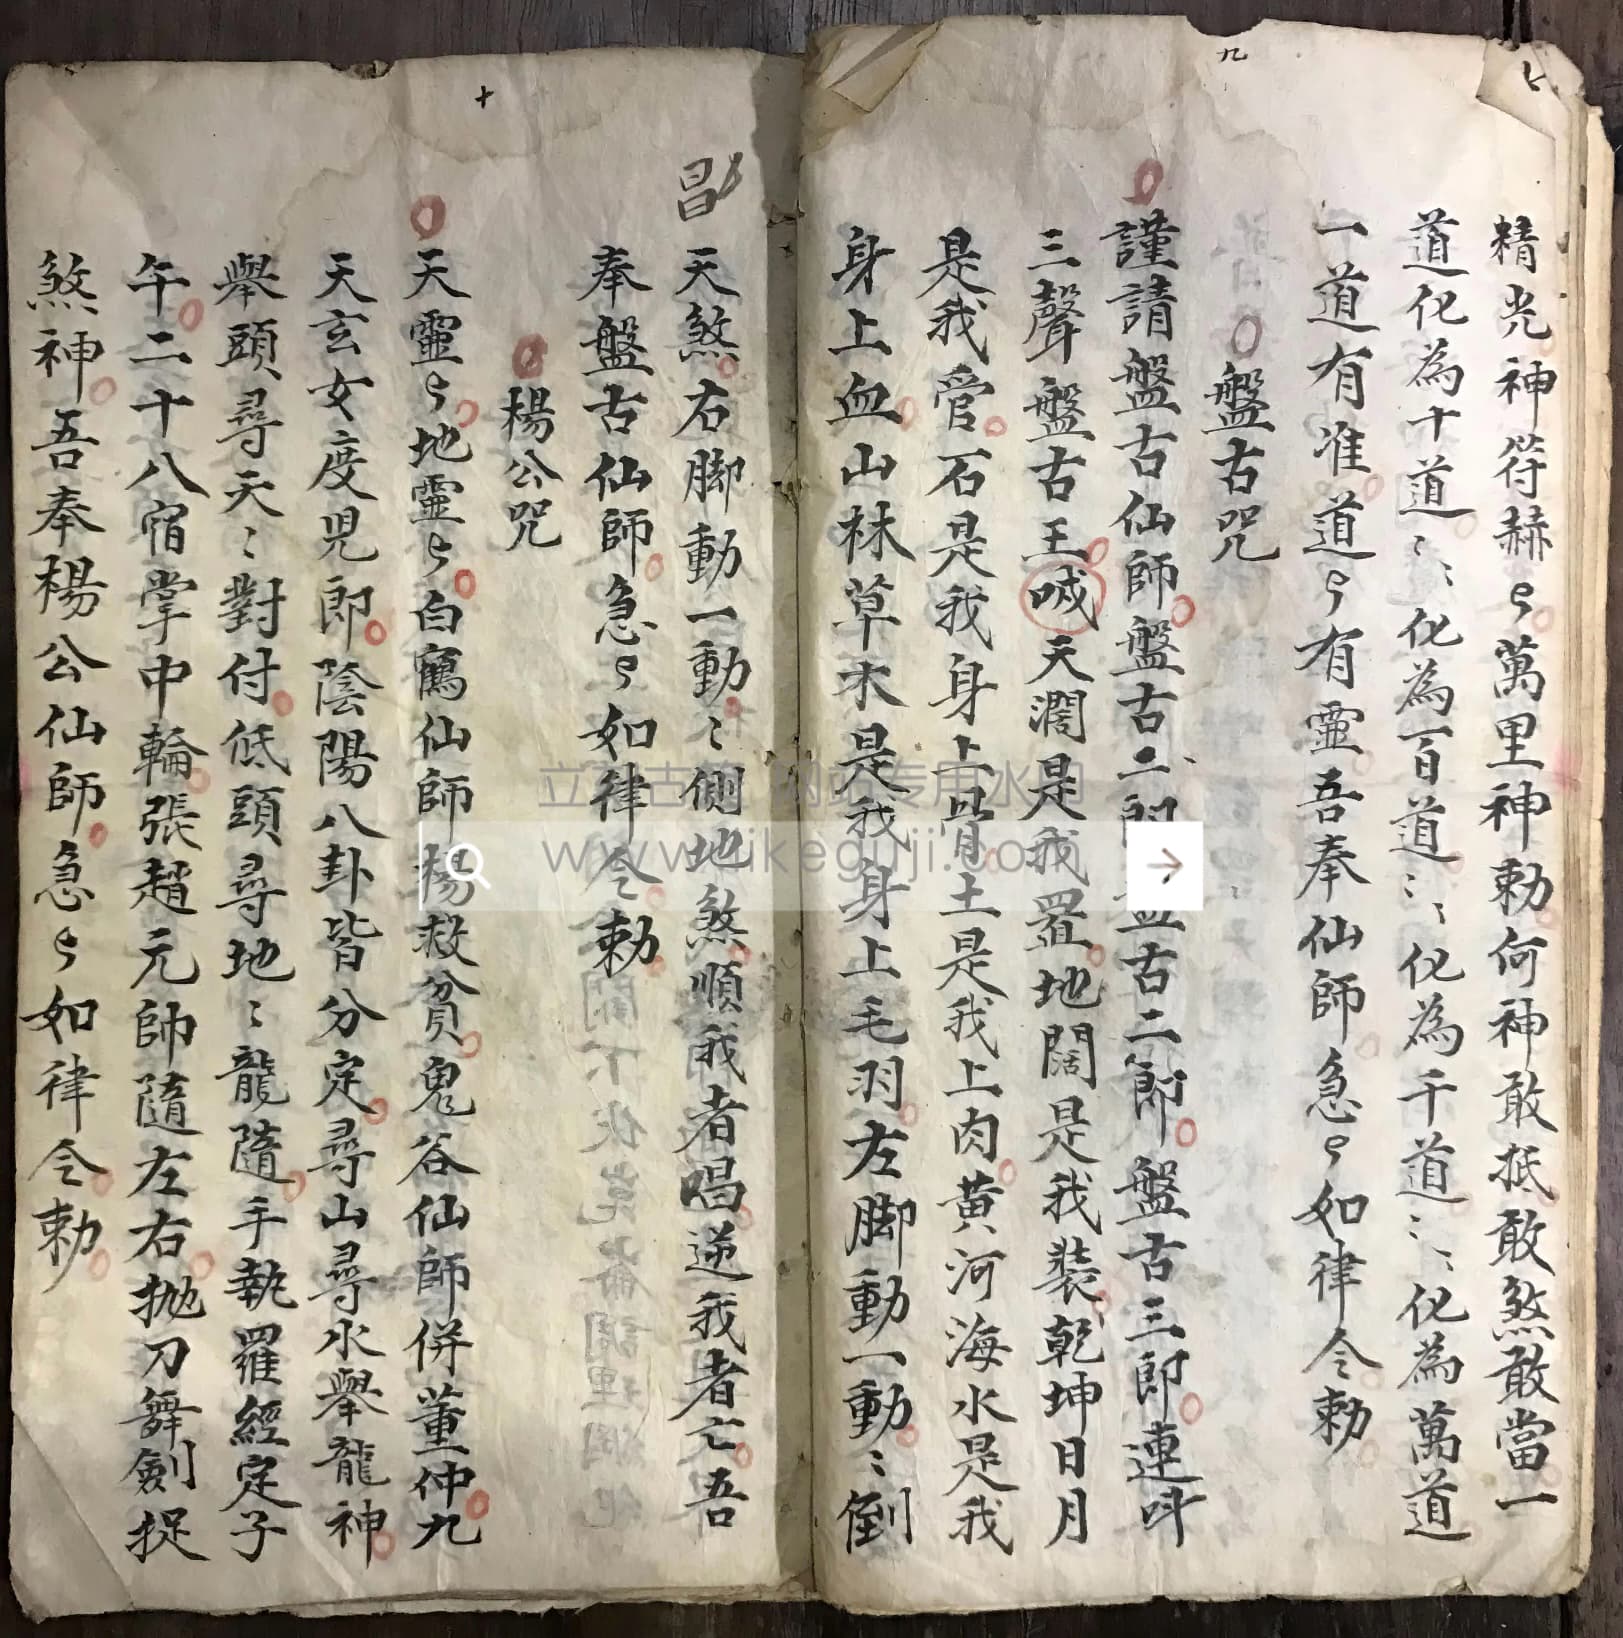 九
精光神符赫〻萬里神勅何神敢抵敢煞敢當一
道化為十道〻〻化為百道〻〻化為千道〻〻化為萬道
一道有准道〻有靈吾奉仙師急〻如律令勅
盤古咒
謹請盤古仙師盤古二郎盤古二郎盤古三郎連叫
三聲盤古王喊天濶是我置地闊是我裝乾坤日月
是我管石是我身上骨土是我上肉黃河海水是我
身上血山林草木是我身上毛羽左脚動一動〻倒
昌
天煞右脚動一動〻側地煞順我者唱逆我者亡吾
奉盤古仙師急〻如律令勅
楊公咒
天靈〻地靈〻白鶴仙師楊救貧鬼谷仙師併董仲九
天玄女度児郎陰陽八卦皆分定尋山尋水舉龍神
舉頭尋天〻對付低頭尋地〻龍隨手執羅經定子
午二十八宿掌中輪張趙元帥隨左右抛刀舞劍捉
煞神吾奉楊公仙師急〻如律令勅
十
www.likeguji.com